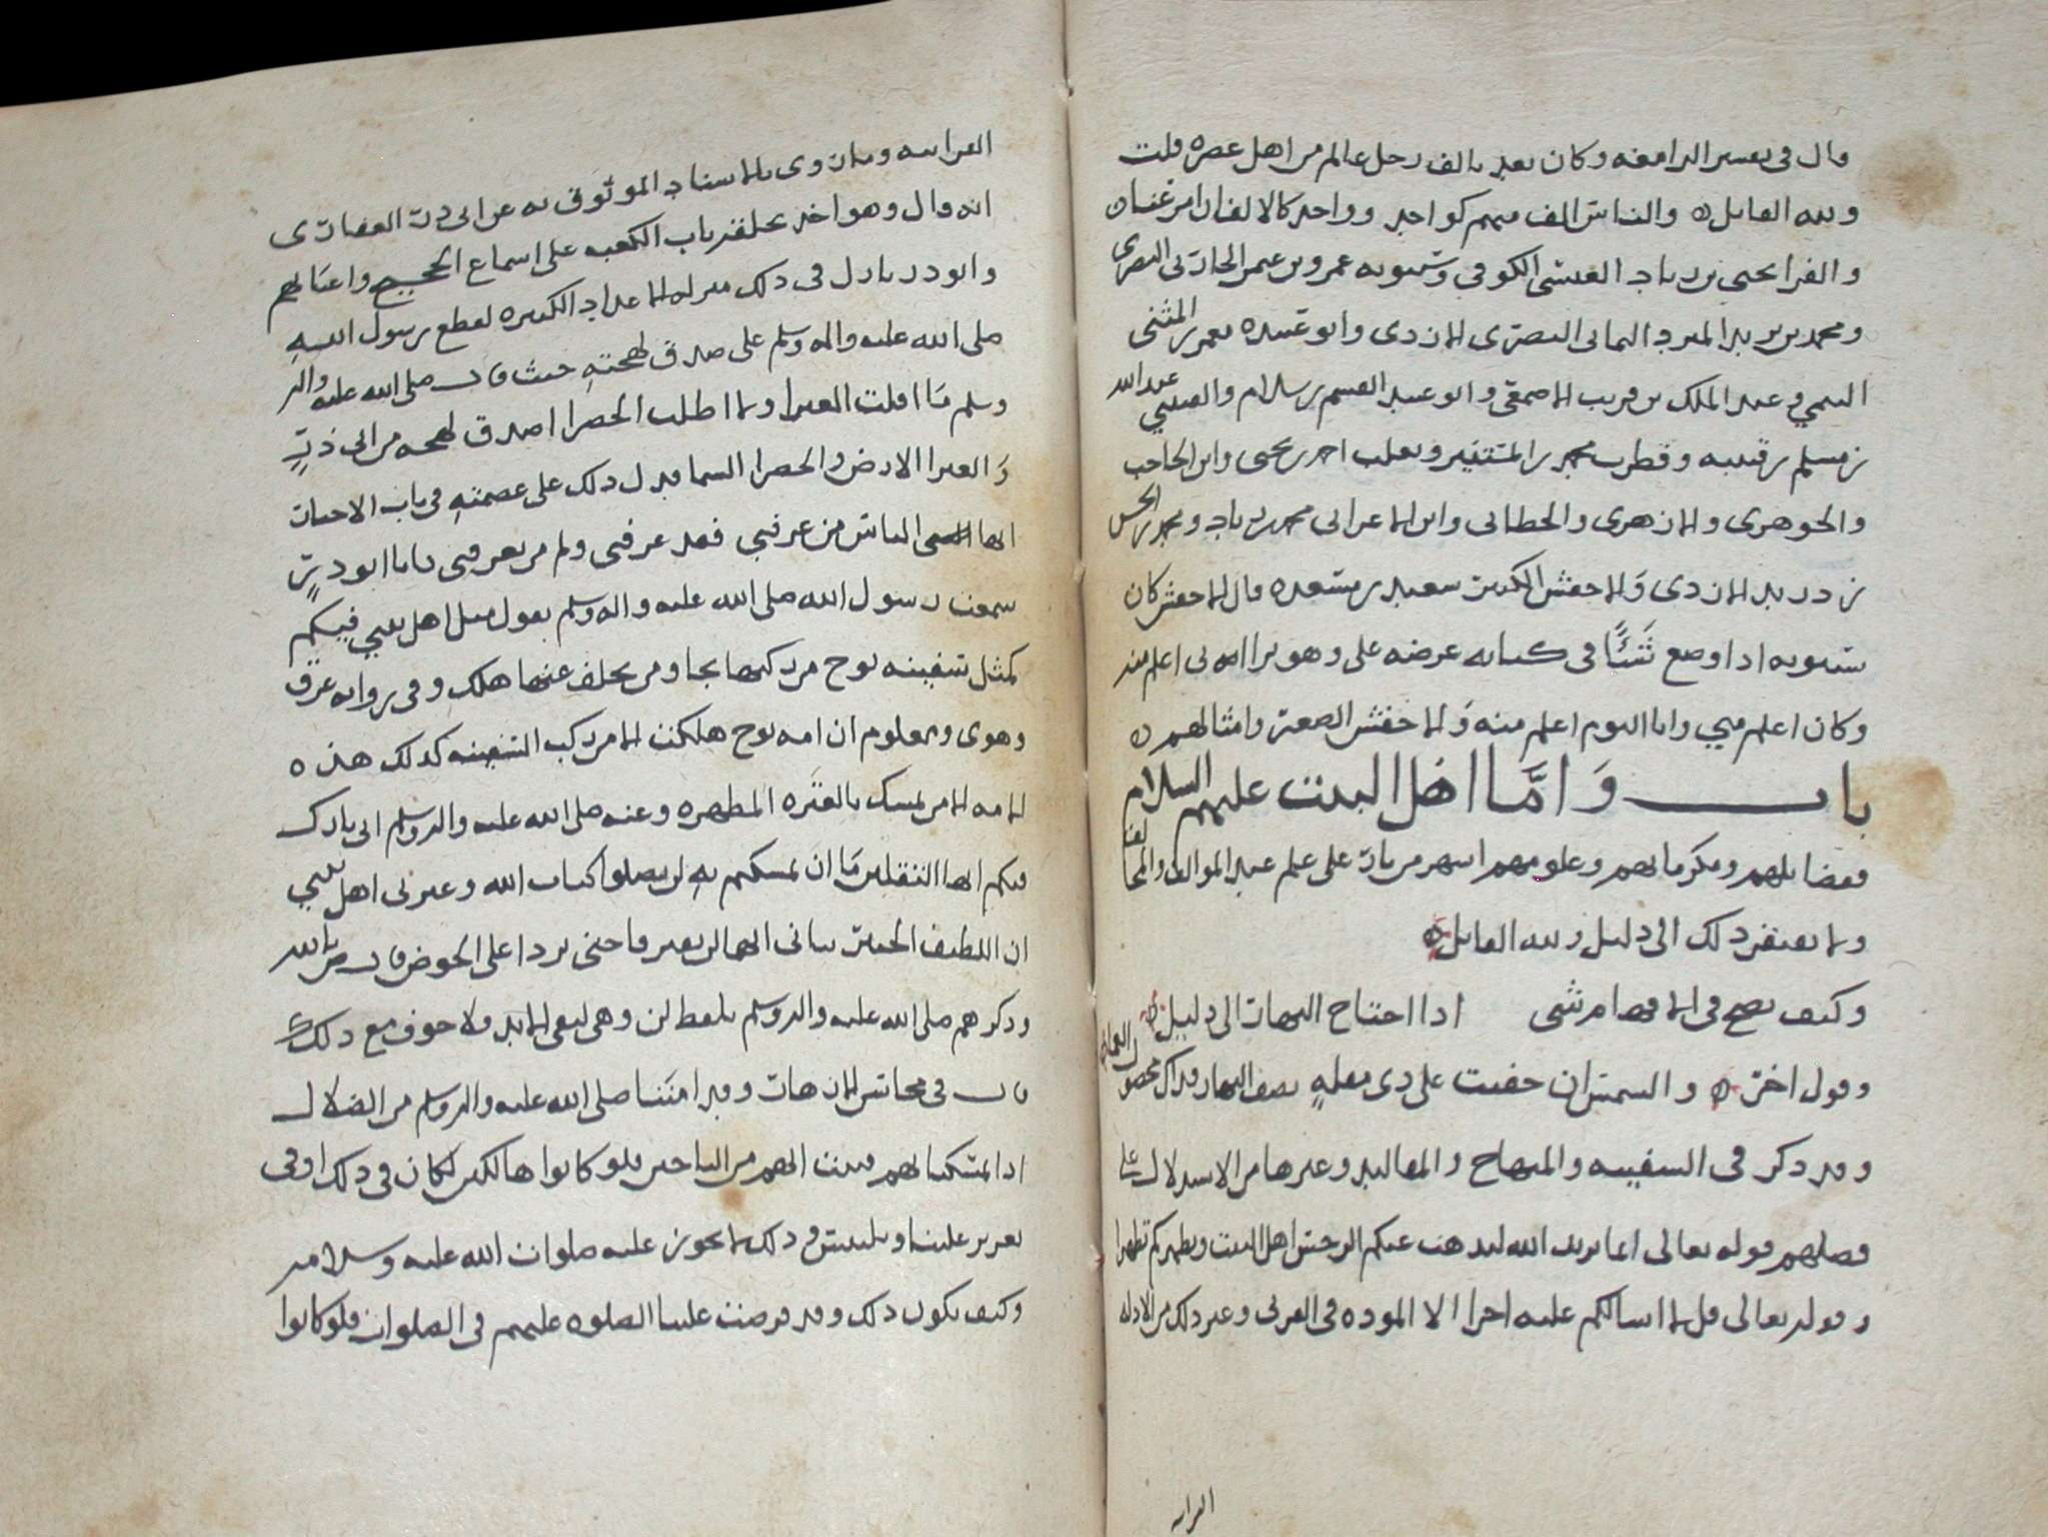 قال في تفسير الرامغه وكان يعد بالف رجل عالم من اهل عصره قلت
ولله القايل ٥ والناس الف منهم كواحد وواحد كالالف ان امر عنا ٥
والفرا يحيى بن زياد العبسي الكوفي وسيبويه عمرو بن عمر الحارثي البصري
ومحمد بن يزيد المبرد اليماني البصري الازدي وابو عبيده معمر بن المثنى
التيمي وعبد الملك بن قريب الاصمعي وابو عبيد القسم بن سلام والقتيبي عبد الله
بن مسلم بن قتيبه وقطرب محمد بن المستنير وثعلب احمد بن يحيى وابن الحاجب
والجوهري والازهري والخطابي وابن الاعرابي محمد بن زياد ومحمد بن الحسن
بن دريد الازدي والاخفش الكبير سعيد بن مسعده قال الاخفش كان
سيبويه اذا وضع شَيْئًا في كتابه عرضه علي وهو يرا انني اعلم منه
وكان اعلم مني وانا اليوم اعلم منه وَالاخفش الصغير وامثالهم ٥
باب وَامَّا اهل البيت عليهم السلام
ففضايلهم ومكرماتهم وعلومهم اشهر من نار على علم عند الموالف والمخالف
ولا يفتقر ذلك الى دليل ولله القايل ٥
وكيف يصح في الافهام شي اذا احتاج النهار الى دليل ٥
وقول اخر ٥ والشمس ان خفيت على ذي مقلهٍ نصف النهار فذاك محصول العما
وقد ذكر في السفينه والمنهاج والمقاليد وغيرها من الاستدلال على
فضلهم قوله تعالى انما يريد الله ليذهب عنكم الرجس اهل البيت ويطهركم تطهيرا
وقوله تعالى قل لا اسالكم عليه اجرا الا الموده في القربى وغير ذلك من الادله
القرانيه
القرانيه ومما روي بالاسناد الموثوق به عن ابي ذر الغفاري
انه قال وهو اخذ بحلقه باب الكعبه على اسماع الحجيج واعيانهم
وابو ذر نازل في ذلك منزله الاعداد الكثيره لقطع رسول اللهِ
صلى الله عليه واله وسلم على صدق لهجتهِ حيث قال صلى الله عليه واله
وسلم مَا اقلت الغبرا ولا اظلت الخضرا اصدق لهجه من ابي ذرٍ
وَالغبرا الارض والخضرا السما فدل ذلك على عصمتهِ في باب الاخبار
ايها الناس من عرفني فقد عرفني ولم من يعرفني فانا ابو ذرٍ
سمعت رسول الله صلى الله عليه واله وسلم يقول مثل اهل بيتي فيكم
كمثل سفينه نوح من ركبها نجا ومن تخلف عنها هلك وفي روايه غرق
وهوى ومعلوم ان امه نوح هلكت الا من ركب السفينه كذلك هذه
الامه الا من تمسك بالعتره المطهره وعنه صلى الله عليه واله وسلم اني تارك
فيكم ايها الثقلين مَا ان تمسكتم بهِ لن تضلوا كتاب الله وعترتي اهل بيتي
ان اللطيف الخبير نباني انهما لن يفترقا حتى يردا على الحوض قال
وذكرهم صلى الله عليه واله وسلم بلفظ لن وهي لنفي الابد ولا خوف مع ذلك
قال في محاسن الازهار وقد امنَنا صلى الله عليه واله وسلم من الضلال
اذا تمسكنا بهم فثبت انهم من الناجين فلو كانوا هالكين لكان في ذلك اوفى
تغرير علينا وتلبيس وذلك لا يجوز عليه صلوات الله عليه وسلامه
وكيف يكون ذلك وقد فرضت علينا الصلوه عليهم في الصلوات فلو كانوا